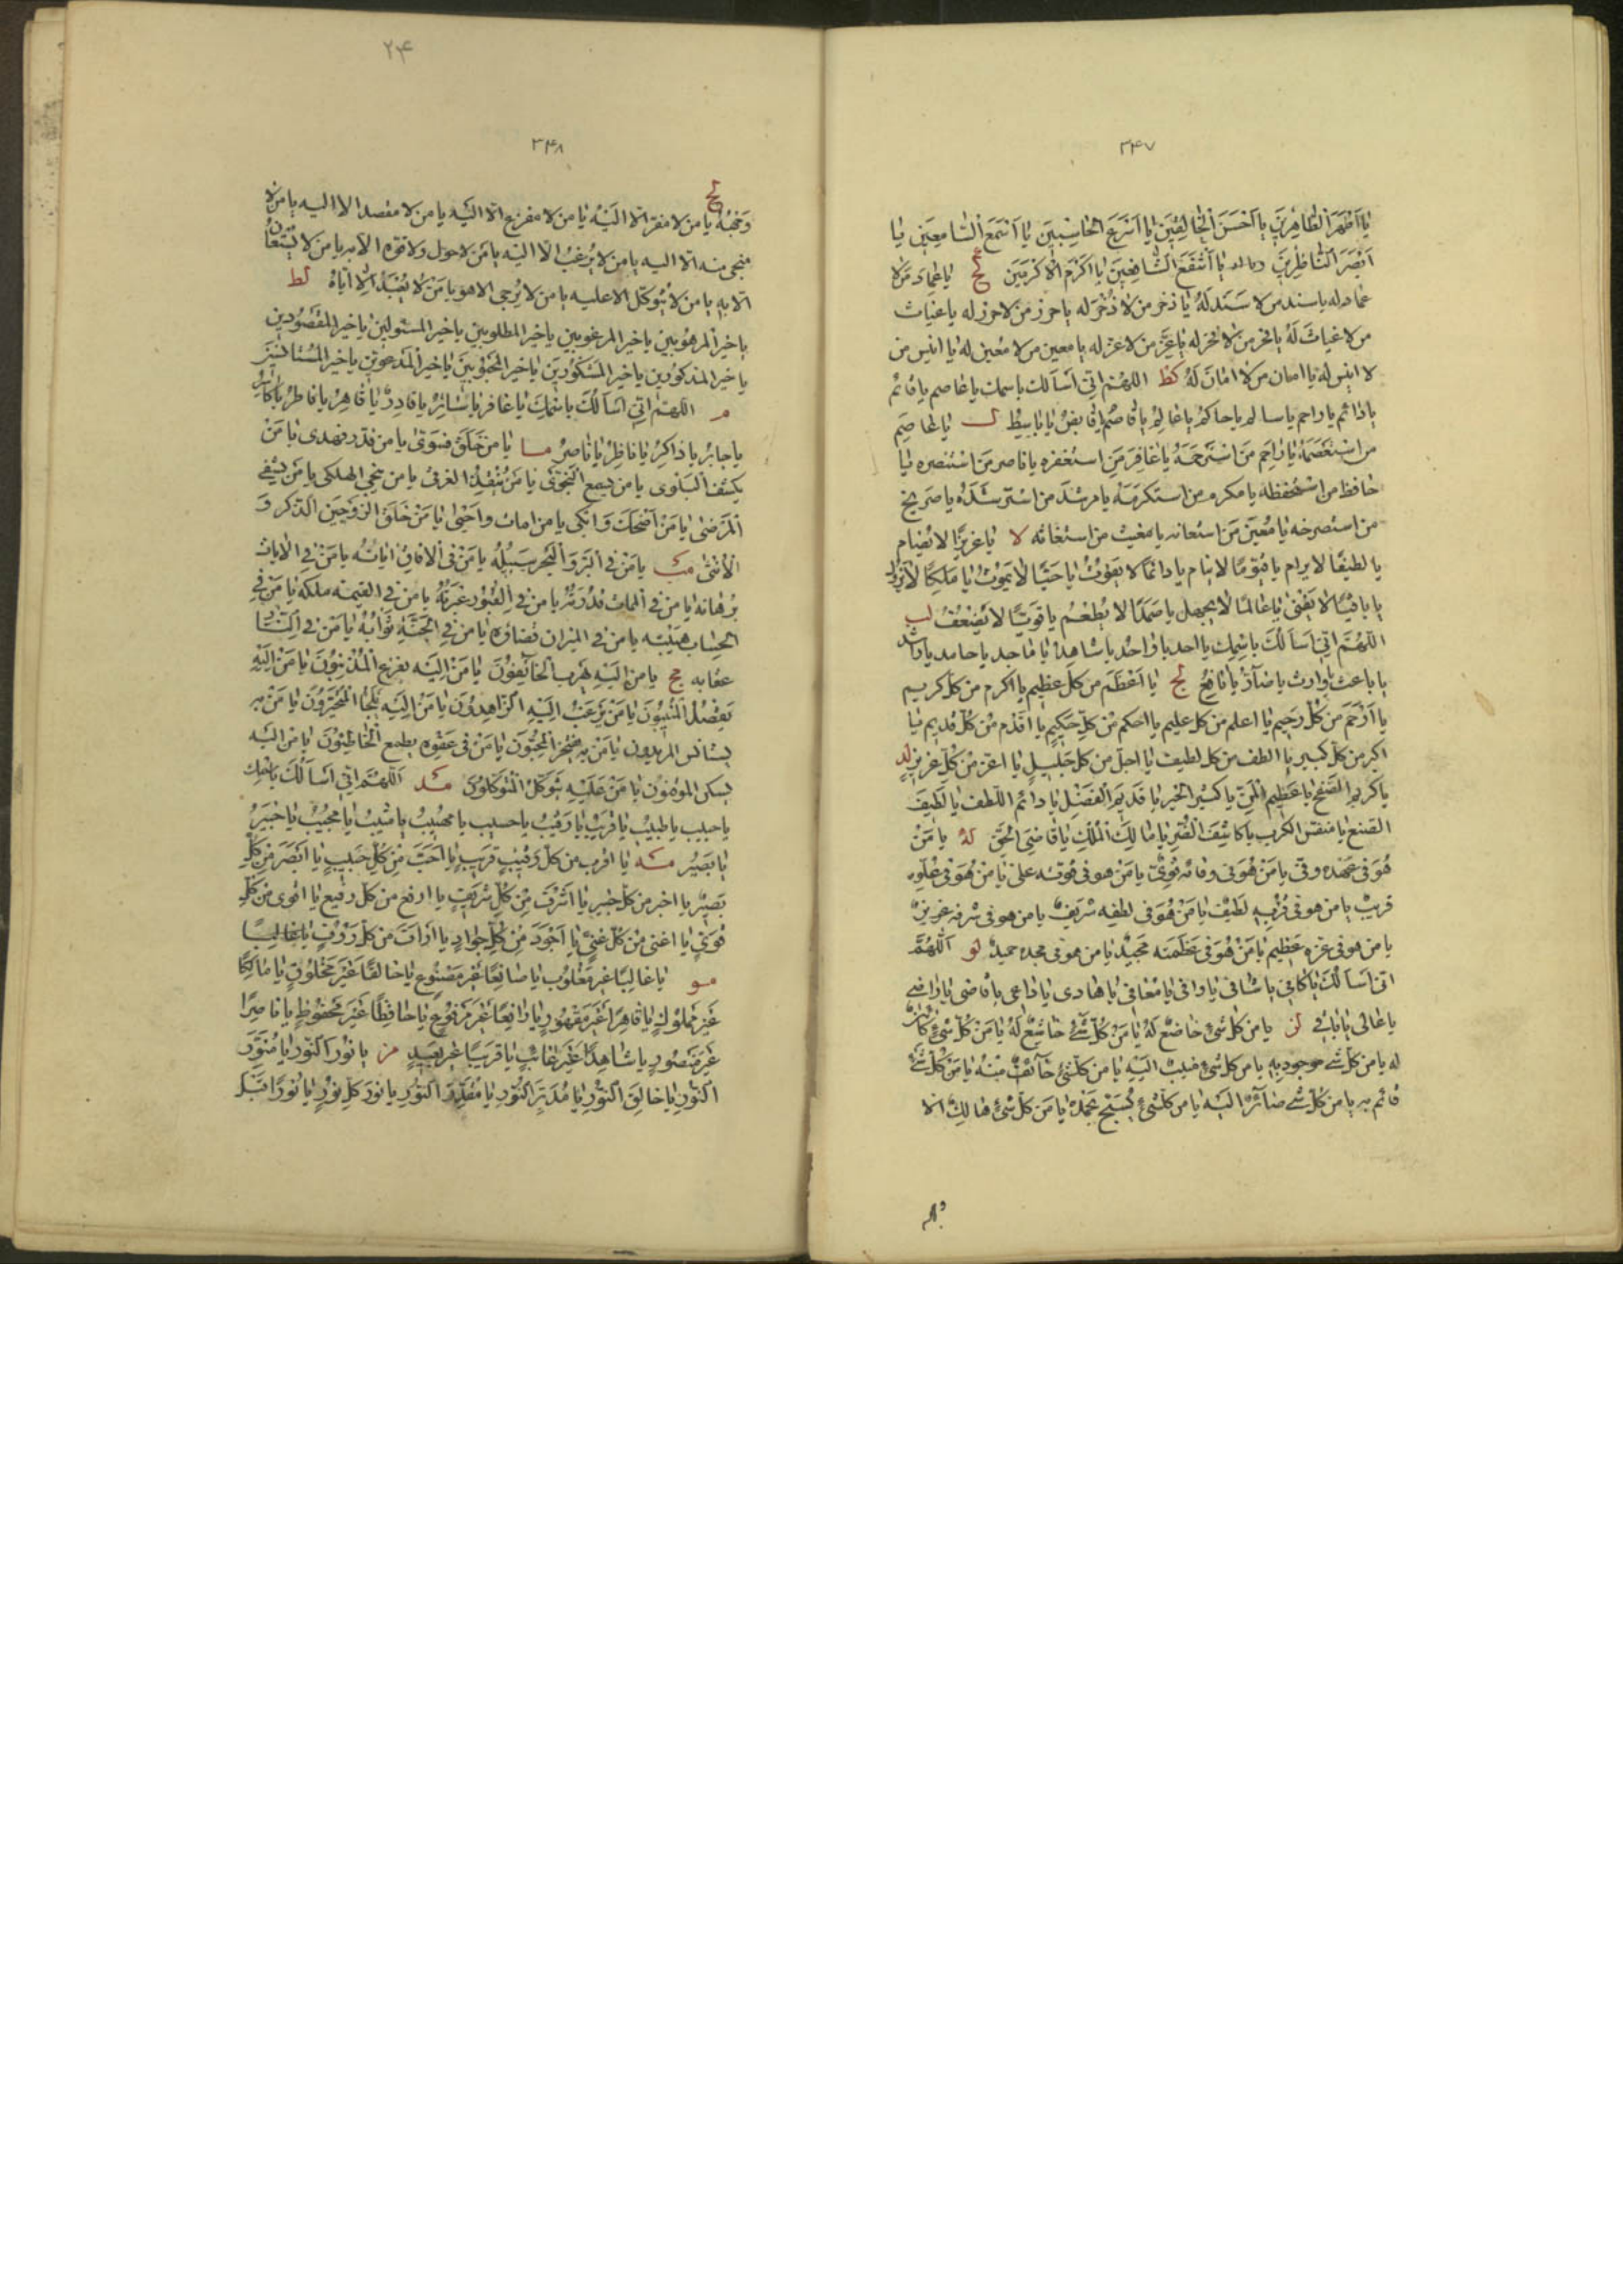 ۳۴۷
یا اطهر الطاهرین یا احسن الخالقین یا اسرع الحاسبین یا اسمع السامعین یا
ابصر الناظرین یا اشفع الشافعین یا اکرم الاکرمین کح یا عماد من لا
عماد له یا سند من لا سند له یا ذخر من لا ذخر له یا حرز من لا حرز له یا غیاث
من لا غیاث له یا فخر من لا فخر له یا عز من لا عز له یا معین من لا معین له یا انیس من
لا انیس له یا امان من لا امان له کط اللهم انی اسالک باسمک یا عاصم یا قائم
یا دائم یا راحم یا سالم یا حاکم یا عالم یا قاسم یا قابض یا باسط ل یا عاصم
من استعصمه یا راحم من استرحمه یا غافر من استغفره یا ناصر من استنصره یا
حافظ من استحفظه یا مکرم من استکرمه یا مرشد من استرشده یا صریخ
من استصرخه یا معین من استعانه یا مغیث من استغاثه لا یا عزیزا لا یضام
یا لطیفا لا یرام یا قیوما لا ینام یا دائما لا یفوت یا حیا لا یموت یا ملکا لا یزول
یا باقیا لا یفنی یا عالما لا یجهل یا صمدا لا یطعم یا قویا لا یضعف لب
اللهم انی اسالک باسمک یا احد یا واحد یا شاهد یا ماجد یا حامد یا راشد
یا باعث یا وارث یا ضار یا نافع لج یا اعظم من کل عظیم یا اکرم من کل کریم
یا ارحم من کل رحیم یا اعلم من کل علیم یا احکم من کل حکیم یا اقدم من کل قدیم یا
اکبر من کل کبیر یا الطف من کل لطیف یا اجل من کل جلیل یا اعز من کل عزیز لد
یا کریم الصفح یا عظیم المن یا کثیر الخیر یا قدیم الفضل یا دائم اللطف یا لطیف
الصنع یا منفس الکرب یا کاشف الضر یا مالک الملک یا قاضی الحق له یا من
هو فی عهده وفی یا من هو فی وفائه قوی یا من هو فی قوته علی یا من هو فی علوه
قریب یا من هو فی قربه لطیف یا من هو فی لطفه شریف یا من هو فی شرفه عزیز
یا من هو فی عزه عظیم یا من هو فی عظمته مجید یا من هو فی مجده حمید لو اللهم
انی اسالک یا کافی یا شافی یا وافی یا معافی یا هادی یا داعی یا قاضی یا راضی
یا عالی یا باقی لز یا من کل شیء خاضع له یا من کل شیء خاشع له یا من کل شیء کائن
له یا من کل شیء موجود به یا من کل شیء منیب الیه یا من کل شیء خائف منه یا من کل شیء
قائم به یا من کل شیء صائر الیه یا من کل شیء یسبح بحمده یا من کل شیء هالک الا
۲۴
۳۴۸
وجهه لح یا من لا مفر الا الیه یا من لا مفزع الا الیه یا من لا مقصد الا الیه یا من لا
منجی منه الا الیه یا من لا یرغب الا الیه یا من لا حول ولا قوه الا به یا من لا یستعان
الا به یا من لا یتوکل الا علیه یا من لا یرجی الا هو یا من لا یعبد الا ایاه لط
یا خیر المرهوبین یا خیر المرغوبین یا خیر المطلوبین یا خیر المسئولین یا خیر المقصودین
یا خیر المذکورین یا خیر المشکورین یا خیر المحبوبین یا خیر المدعوین یا خیر المستانسین
م اللهم انی اسالک باسمک یا غافر یا ساتر یا قادر یا قاهر یا فاطر یا کاسر
یا جابر یا ذاکر یا ناظر یا ناصر ما یا من خلق فسوی یا من قدر فهدی یا من
یکشف البلوی یا من یسمع النجوی یا من ینقذ الغرقی یا من ینجی الهلکی یا من یشفی
المرضی یا من اضحک و ابکی یا من امات واحیی یا من خلق الزوجین الذکر و
الانثی مب یا من فی البر و البحر سبیله یا من فی الافاق ایاته یا من فی الایات
برهانه یا من فی الممات قدرته یا من فی القبور عبرته یا من فی القیمه ملکه یا من فی
الحساب هیبته یا من فی المیزان قضاؤه یا من فی الجنة ثوابه یا من فی النار
عقابه مج یا من الیه یهرب الخائفون یا من الیه یفزع المذنبون یا من الیه
یقصد المنیبون یا من یرغب الیه الزاهدون یا من الیه یلجا المتحیرون یا من به
یستانس المریدون یا من به یفتخر المحبون یا من فی عفوه یطمع الخاطئون یا من الیه
یسکن الموقنون یا من علیه یتوکل المتوکلون مد اللهم انی اسالک باسمک
یا حبیب یا طبیب یا قریب یا رقیب یا حسیب یا مهیب یا مثیب یا مجیب یا خبیر
یا بصیر مه یا اقرب من کل قریب یا احب من کل حبیب یا ابصر من کل
بصیر یا اخبر من کل خبیر یا اشرف من کل شریف یا ارفع من کل رفیع یا اقوی من کل
قوی یا اغنی من کل غنی یا اجود من کل جواد یا اراف من کل رؤف
مو یا غالبا غیر مغلوب یا صانعا غیر مصنوع یا خالقا غیر مخلوق یا مالکا
غیر مملوک یا قاهرا غیر مقهور یا رافعا غیر مرفوع یا حافظا غیر محفوظ یا ناصرا
غیر منصور یا شاهدا غیر غائب یا قریبا غیر بعید مز یا نور النور یا منور
النور یا خالق النور یا مدبر النور یا مقدر النور یا نور کل نور یا نورا قبل